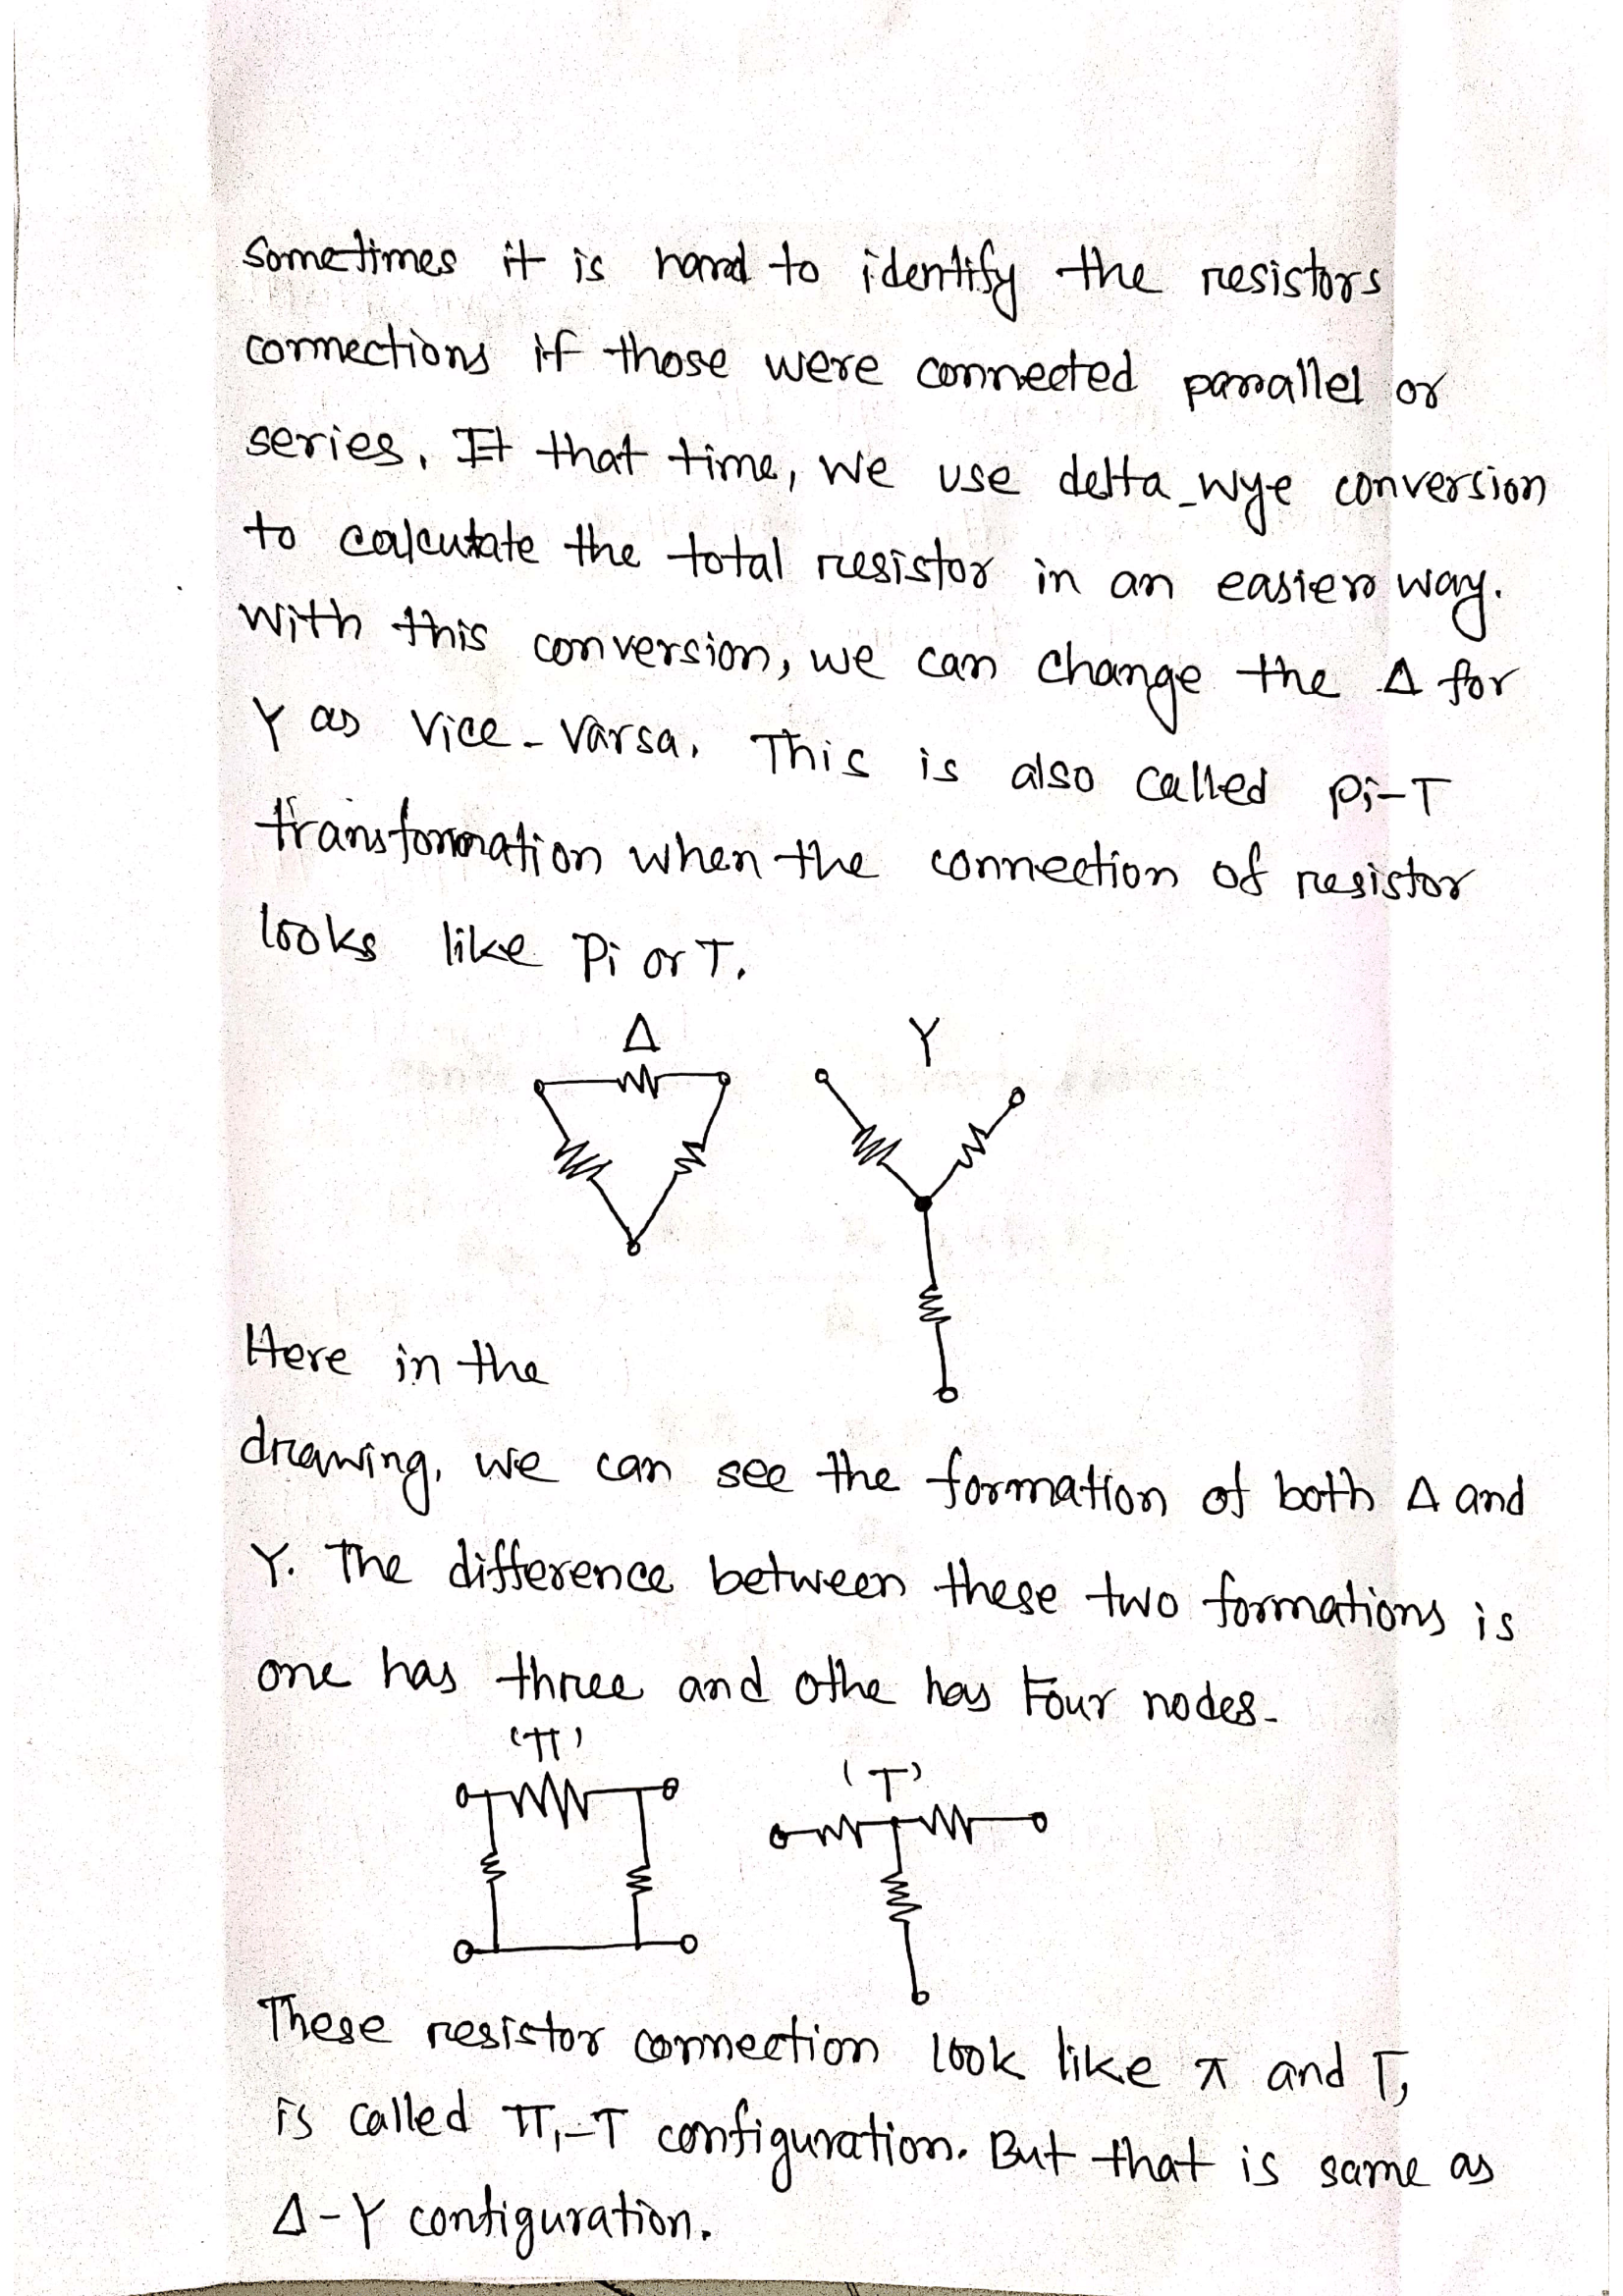 Sometimes it is hard to identify the resistors
connections if those were connected parallel or
series, It that time, we use delta-wye conversion
to calcutate the total resistor in an easier way.
With this conversion, we can change the Δ for
Y as vice-varsa. This is also called Pi-T
transformation when the connection of resistor
looks like Pi or T.
Δ Y
Here in the
drawing, we can see the formation of both Δ and
Y. The difference between these two formations is
one has three and othe has four nodes-
'π'
'T'
These resistor connection look like π and T,
is called π-T configuration. But that is same as
Δ-Y configuration.